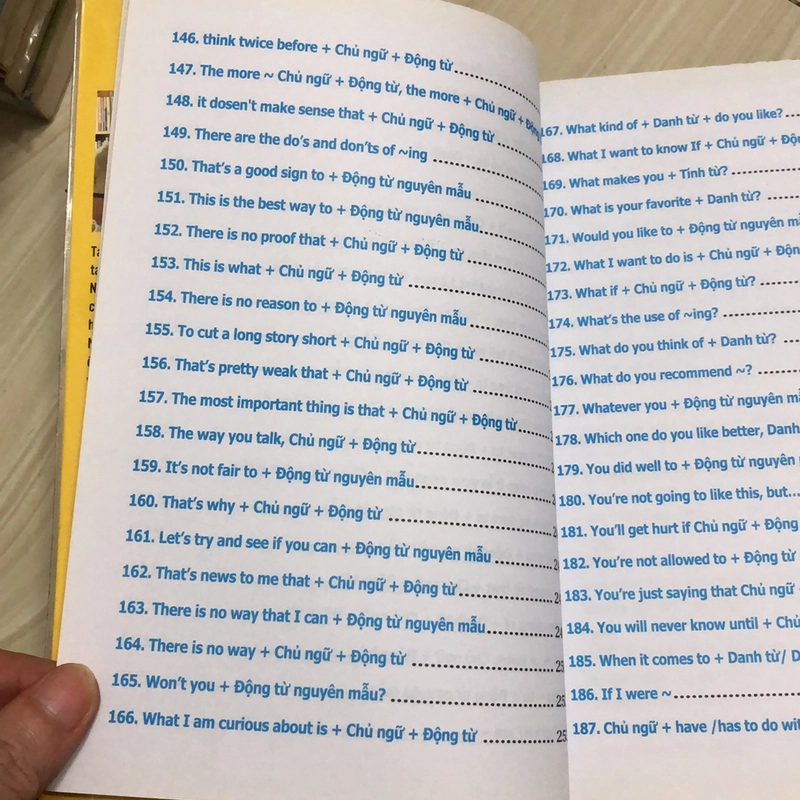 146. think twice before + Chủ ngữ + Động từ
147. The more ~ Chủ ngữ + Động từ, the more + Chủ ngữ + Động
148. it dosen't make sense that + Chủ ngữ + Động từ
149. There are the do's and don'ts of ~ing
150. That's a good sign to + Động từ nguyên mẫu
151. This is the best way to + Động từ nguyên mẫu
152. There is no proof that + Chủ ngữ + Động từ
153. This is what + Chủ ngữ + Động từ
154. There is no reason to + Động từ nguyên mẫu
155. To cut a long story short + Chủ ngữ + Động từ
156. That's pretty weak that + Chủ ngữ + Động từ
157. The most important thing is that + Chủ ngữ + Động từ
158. The way you talk, Chủ ngữ + Động từ
159. It's not fair to + Động từ nguyên mẫu
160. That's why + Chủ ngữ + Động từ
161. Let's try and see if you can + Động từ nguyên mẫu
162. That's news to me that + Chủ ngữ + Động từ
163. There is no way that I can + Động từ nguyên mẫu
164. There is no way + Chủ ngữ + Động từ
165. Won't you + Động từ nguyên mẫu?
166. What I am curious about is + Chủ ngữ + Động từ
167. What kind of + Danh từ + do you like?
168. What I want to know If + Chủ ngữ + Độn
169. What makes you + Tính từ?
170. What is your favorite + Danh từ?
171. Would you like to + Động từ nguyên m
172. What I want to do is + Chủ ngữ + Độn
173. What if + Chủ ngữ + Động từ?
174. What's the use of ~ing?
175. What do you think of + Danh từ?
176. What do you recommend ~?
177. Whatever you + Động từ nguyên m
178. Which one do you like better, Danh
179. You did well to + Động từ nguyên
180. You're not going to like this, but...
181. You'll get hurt if Chủ ngữ + Động
182. You're not allowed to + Động từ
183. You're just saying that Chủ ngữ
184. You will never know until + Chủ
185. When it comes to + Danh từ/ D
186. If I were ~
187. Chủ ngữ + have /has to do wit